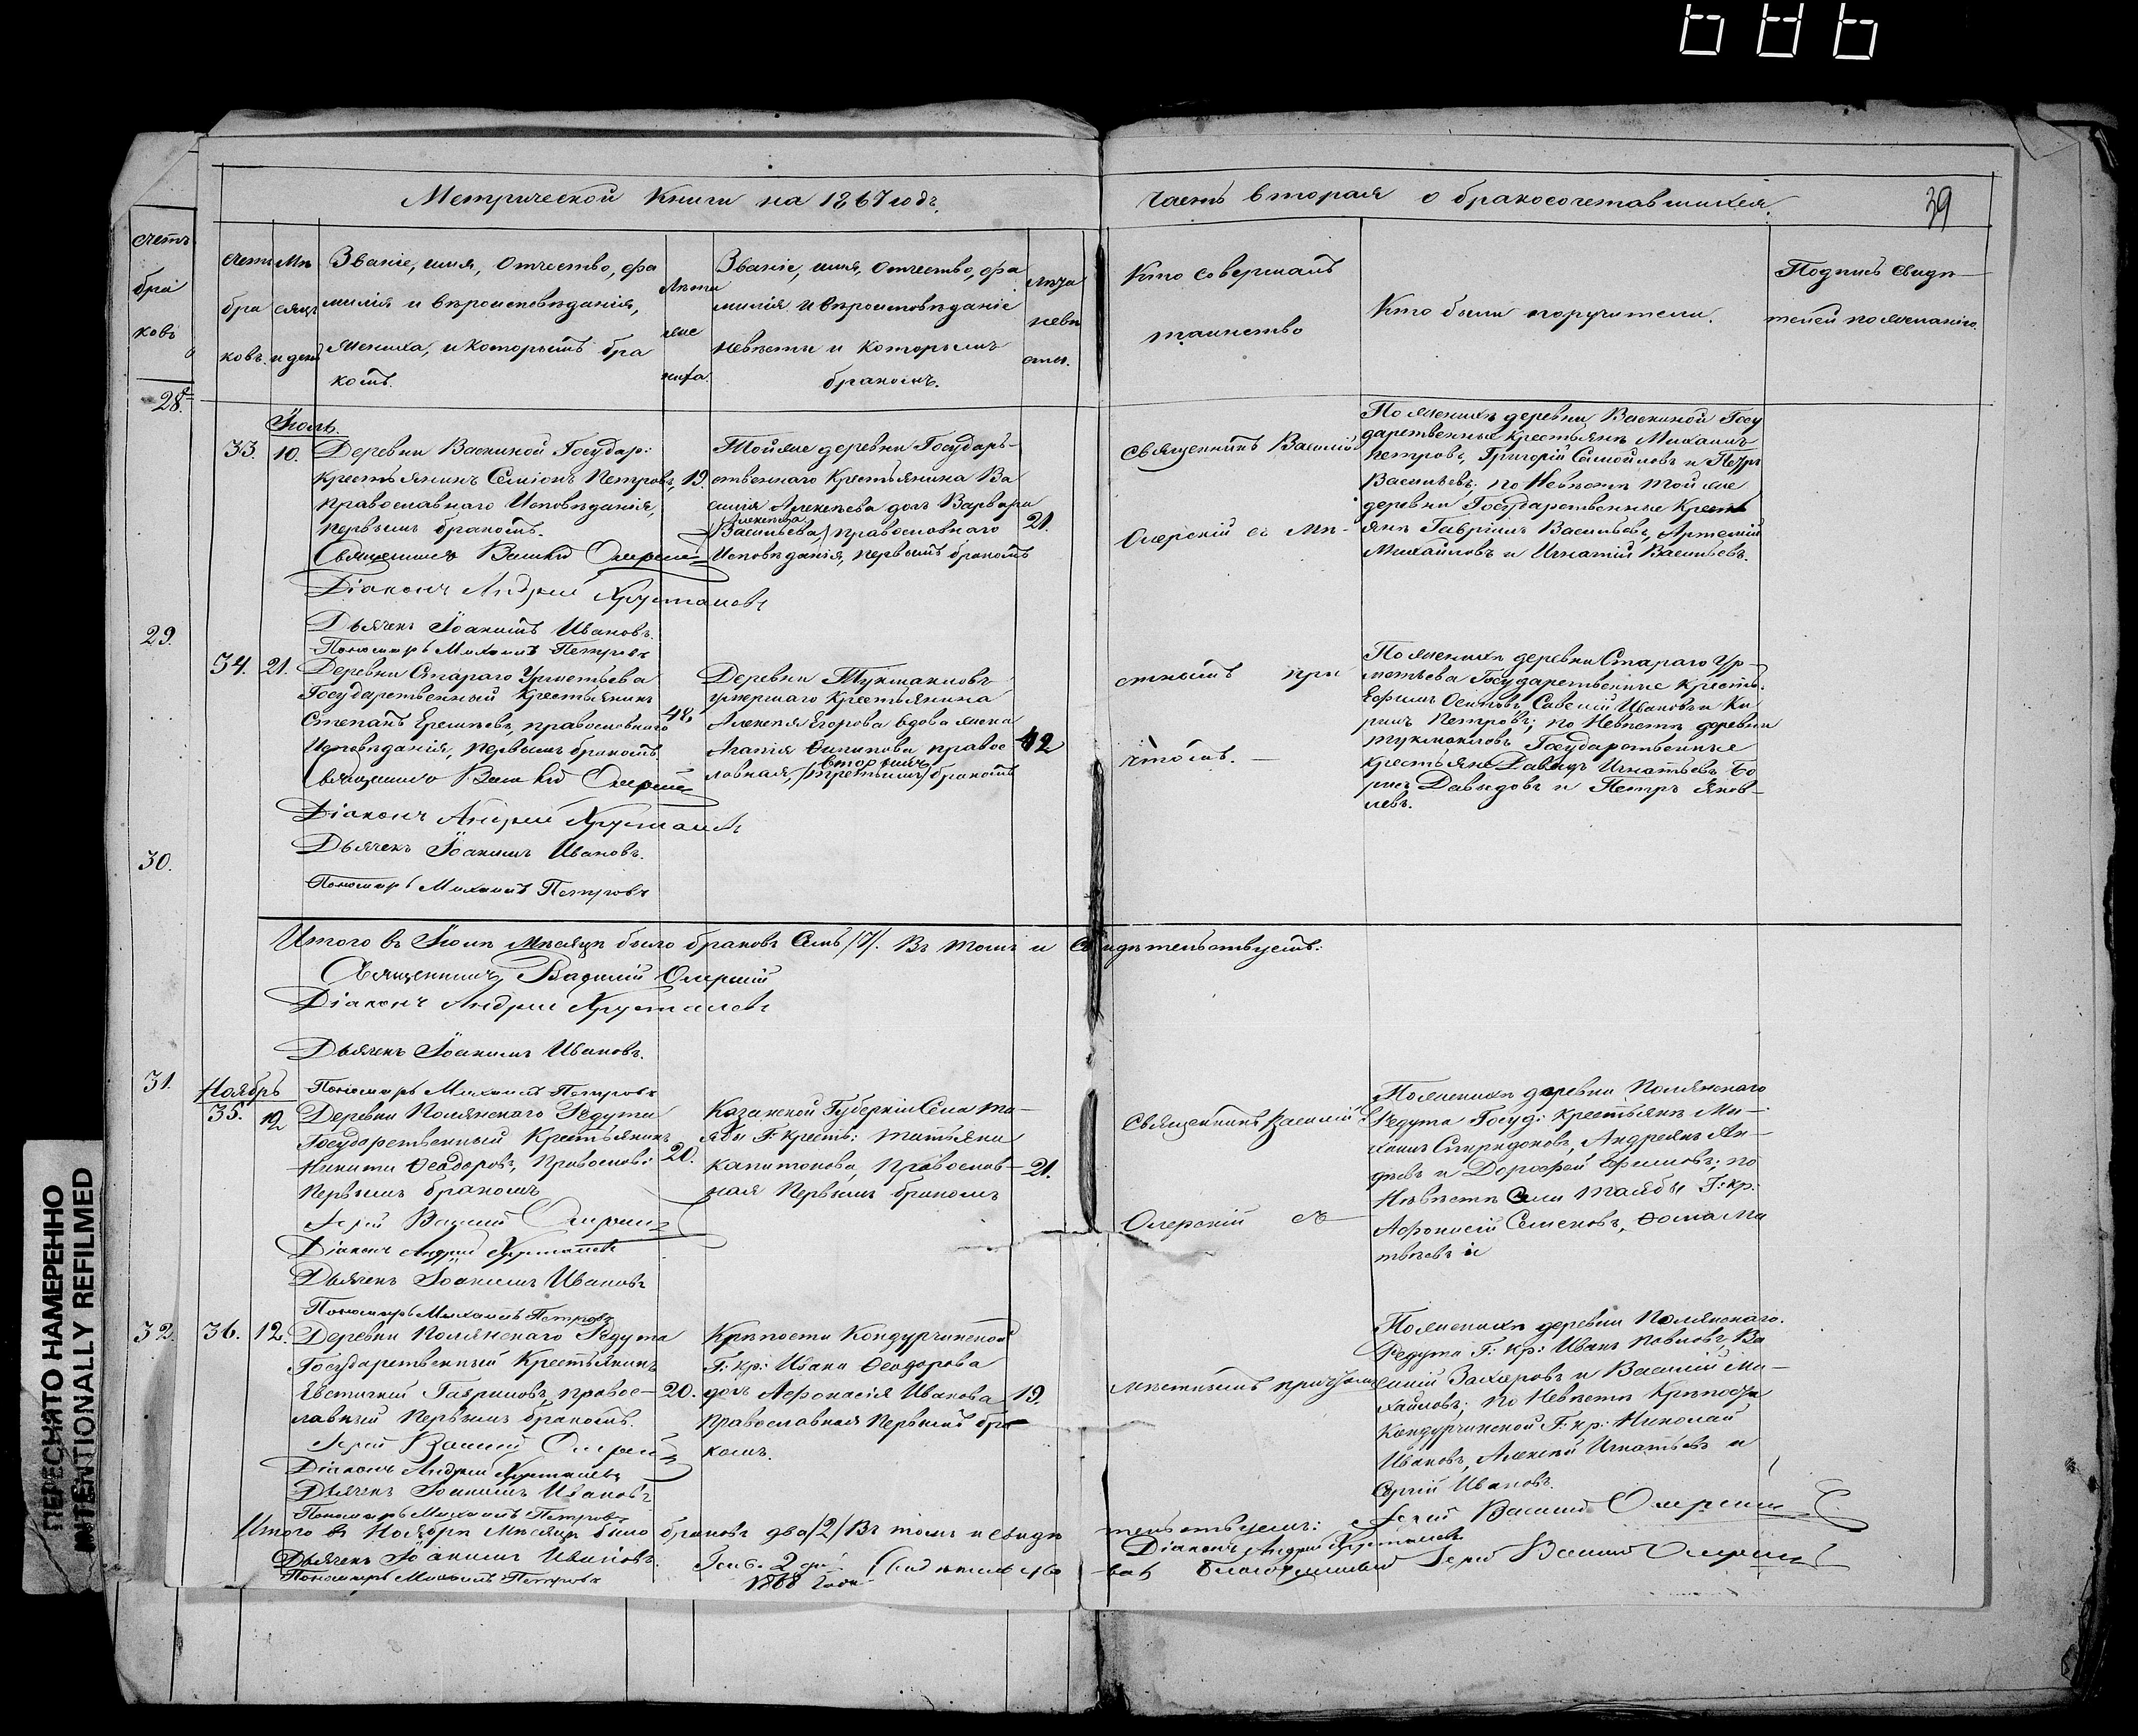 686
Метрической Книги на 1867 годъ.
часть вторая о бракосочетавшихся.
39
счетъ
бра
ковъ
28.
29.
30.
31.
32.
счетъ
бра
ковъ.
Мѣ
сяцъ
и день
Званіе, имя, Отчество, фа
милія и вѣроисповѣданія,
жениха, и которымъ бра
комъ.
Лѣта
же
ниха.
Званіе, имя, Отчество, фа
милія и вѣроисповѣданіе
Невѣсты и которымъ
бракомъ.
лѣта
невѣ
сты.
Кто совершалъ
таинство
Кто были поручители.
Подпись свидѣ
телей по желанію.
Іюль.
33. 10.
Деревни Васкиной Государ:
крестьянинъ Семіонъ Петровъ, 19.
православнаго Исповѣданія,
первымъ бракомъ.
Священникъ Василій Озерскій
Діаконъ Андрей Хрусталевъ
Дьячекъ Іоакимъ Ивановъ.
Пономарь Михаилъ Петровъ
Тойже деревни Государ-
ственнаго Крестьянина Ва
силія Алексѣева дочь Варвара
Алексѣева
/Васильева/ православнаго 21.
Исповѣданія, первымъ бракомъ
Священникъ Василій
Озерскій съ Мѣ-
По женихѣ деревни Васкиной Госу
дарственные крестьяне Михаилъ
Петровъ, Григорій Самойловъ и Петръ
Васильевъ. по Невѣстѣ той же
деревни Государственные Кресть
яне Гавріилъ Васильевъ, Артемій
Михайловъ и Игнатій Васильевъ.
34. 21.
Деревни Стараго Урметьева
Государственный Крестьянинъ
Степанъ Еремѣевъ, православнаго 48.
Исповѣданія, первымъ бракомъ
Священникъ Василій Озерскій
Діаконъ Андрей Хрусталевъ
Дьячекъ Іоакимъ Ивановъ.
Пономарь Михаилъ Петровъ
Деревни Тукмаковъ
умершаго крестьянина
Алексѣя Егорова вдова жена
Агапія Филипова, правос 42
вторымъ
лавная, /третьимъ/ бракомъ
стнымъ при
чтомъ.
По женихѣ деревни Стараго Ур-
метьева Государственные крестья:
Ефимъ Осиповъ, Савелій Ивановъ и Ки
рилъ Петровъ; по Невѣстѣ деревни
Тукмаковъ Государственные
крестьяне Давидъ Игнатьевъ, Бо
рисъ Давыдовъ и Петръ Яков-
левъ.
Итого въ Іюлѣ мѣсяцѣ было браковъ Семь /7/. Въ томъ и свидѣтельствуемъ:
Священникъ Василій Озерскій
Діаконъ Андрей Хрусталевъ
Дьячекъ Іоакимъ Ивановъ.
Пономарь Михаилъ Петровъ
Ноябрь
35. 12
Деревни Полянскаго Редута
Государственный Крестьянинъ
Никита Ѳеодоровъ, Православ: 20.
первымъ бракомъ
Іерей Василій Озерскій
Діаконъ Андрей Хрусталевъ
Дьячекъ Іоакимъ Ивановъ
Пономарь Михаилъ Петровъ
Казанской Губерніи Села Та-
ябы Г: крест: Татьяна
Капитонова, Православ- 21.
ная Первымъ бракомъ
Священникъ Василій
Озерскій съ
По женихѣ деревни Полянскаго
Редута Госуд: крестьяне Ми-
хаилъ Спиридоновъ, Андреянъ Ан-
дѣевъ и Дорофей Ефимовъ; по
Невѣстѣ Села Таябы Г: кр:
Афонасій Семеновъ, Ѳома Ма
твѣевъ и
36. 12.
Деревни Полянскаго Редута
Государственный Крестьянинъ
Евстигней Гавриловъ, правос- 20.
лавный первымъ бракомъ.
Іерей Василій Озерскій
Діаконъ Андрей Хрусталевъ
Дьячекъ Іоакимъ Ивановъ
Пономарь Михаилъ Петровъ
Крѣпости Кондурчинской
Г: кр: Ивана Ѳеодорова
дочь Афонасія Иванова 19.
Православная первымъ бра-
комъ.
мѣстнымъ причтомъ
По женихѣ деревни Полянскаго
Редута Г: кр: Иванъ Павловъ, Ва
силій Захаровъ и Василій Ми-
хайловъ; по Невѣстѣ Крѣпости
Кондурчинской Г: кр: Николай
Ивановъ, Алексѣй Игнатьевъ и
Сергій Ивановъ.
Итого въ Ноябрѣ Мѣсяцѣ было браковъ два /2/ Въ томъ и свидѣ
тельствуемъ: Іерей Василій Озерскій
Діаконъ Андрей Хрусталевъ
Дьячекъ Іоакимъ Ивановъ.
Пономарь Михаилъ Петровъ
Генв. 2 дня
1868 года Свидѣтельство
валъ Благочинный Іерей Василій Озерскій
ПЕРЕСНЯТО НАМЕРЕННО
INTENTIONALLY REFILMED